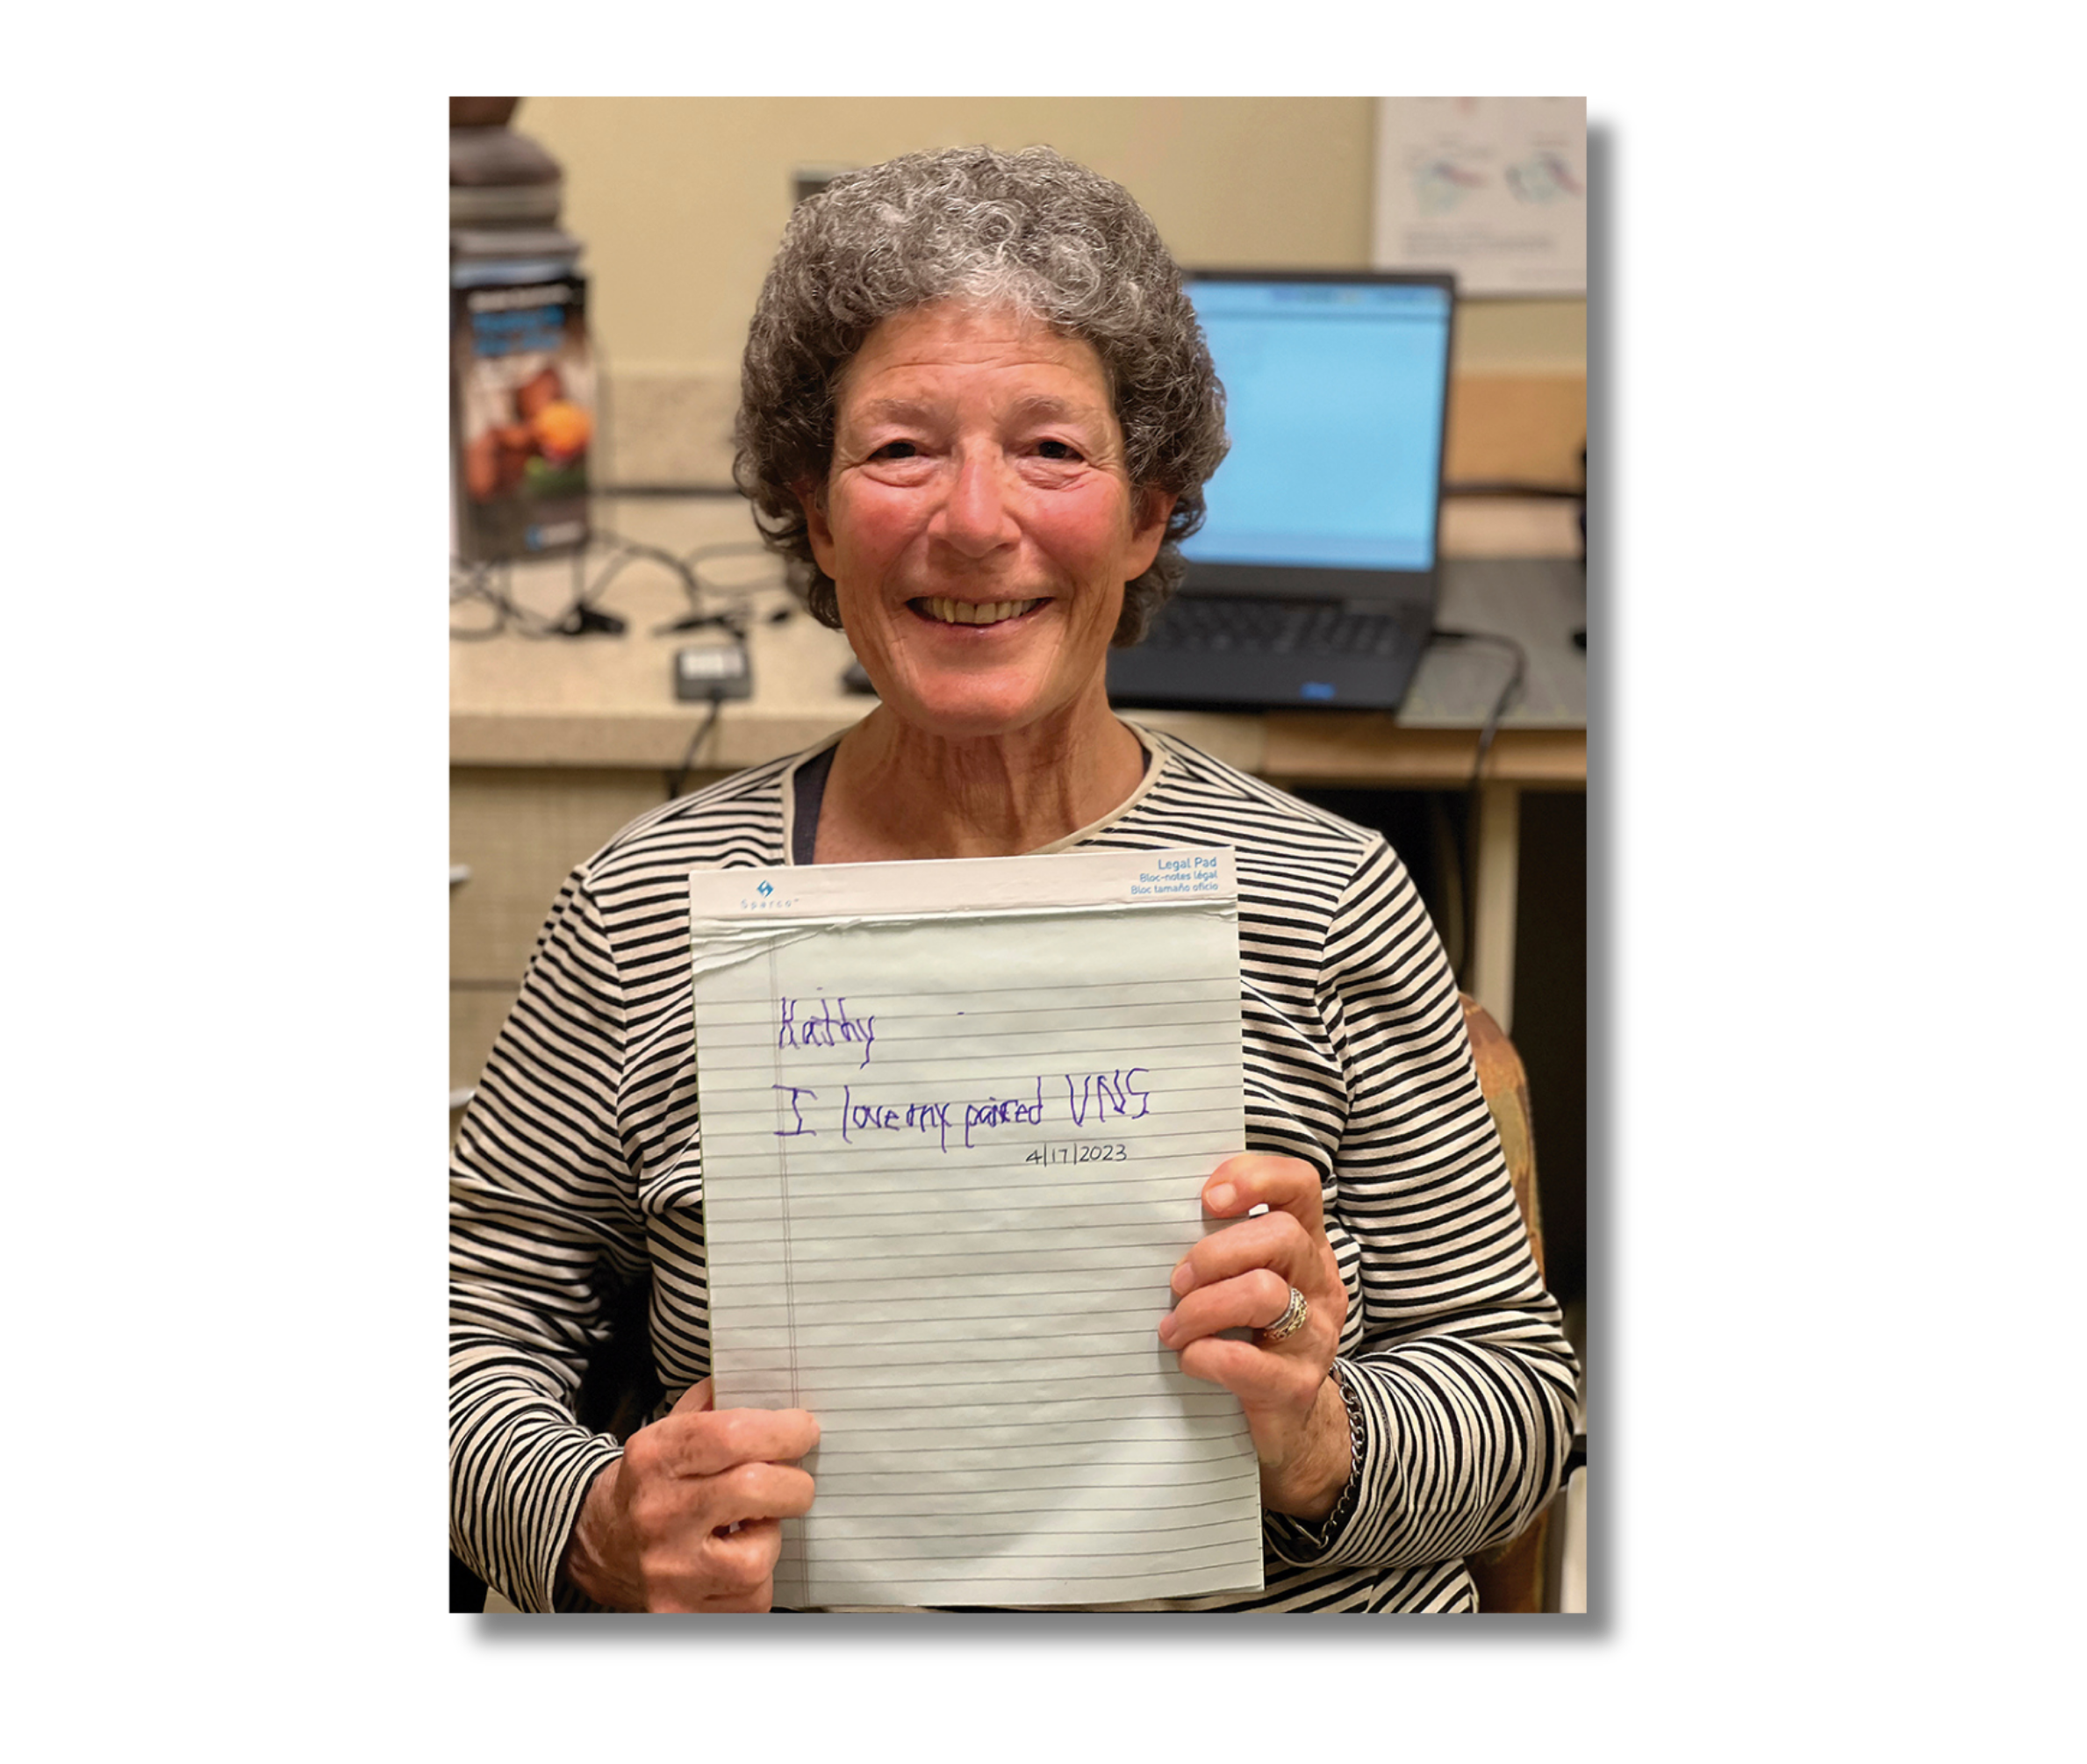 Legal Pad
Bloc-notes légal
Bloc tamaño oficio
Sparco™
Kathy
I love my paired VNS
4/17/2023